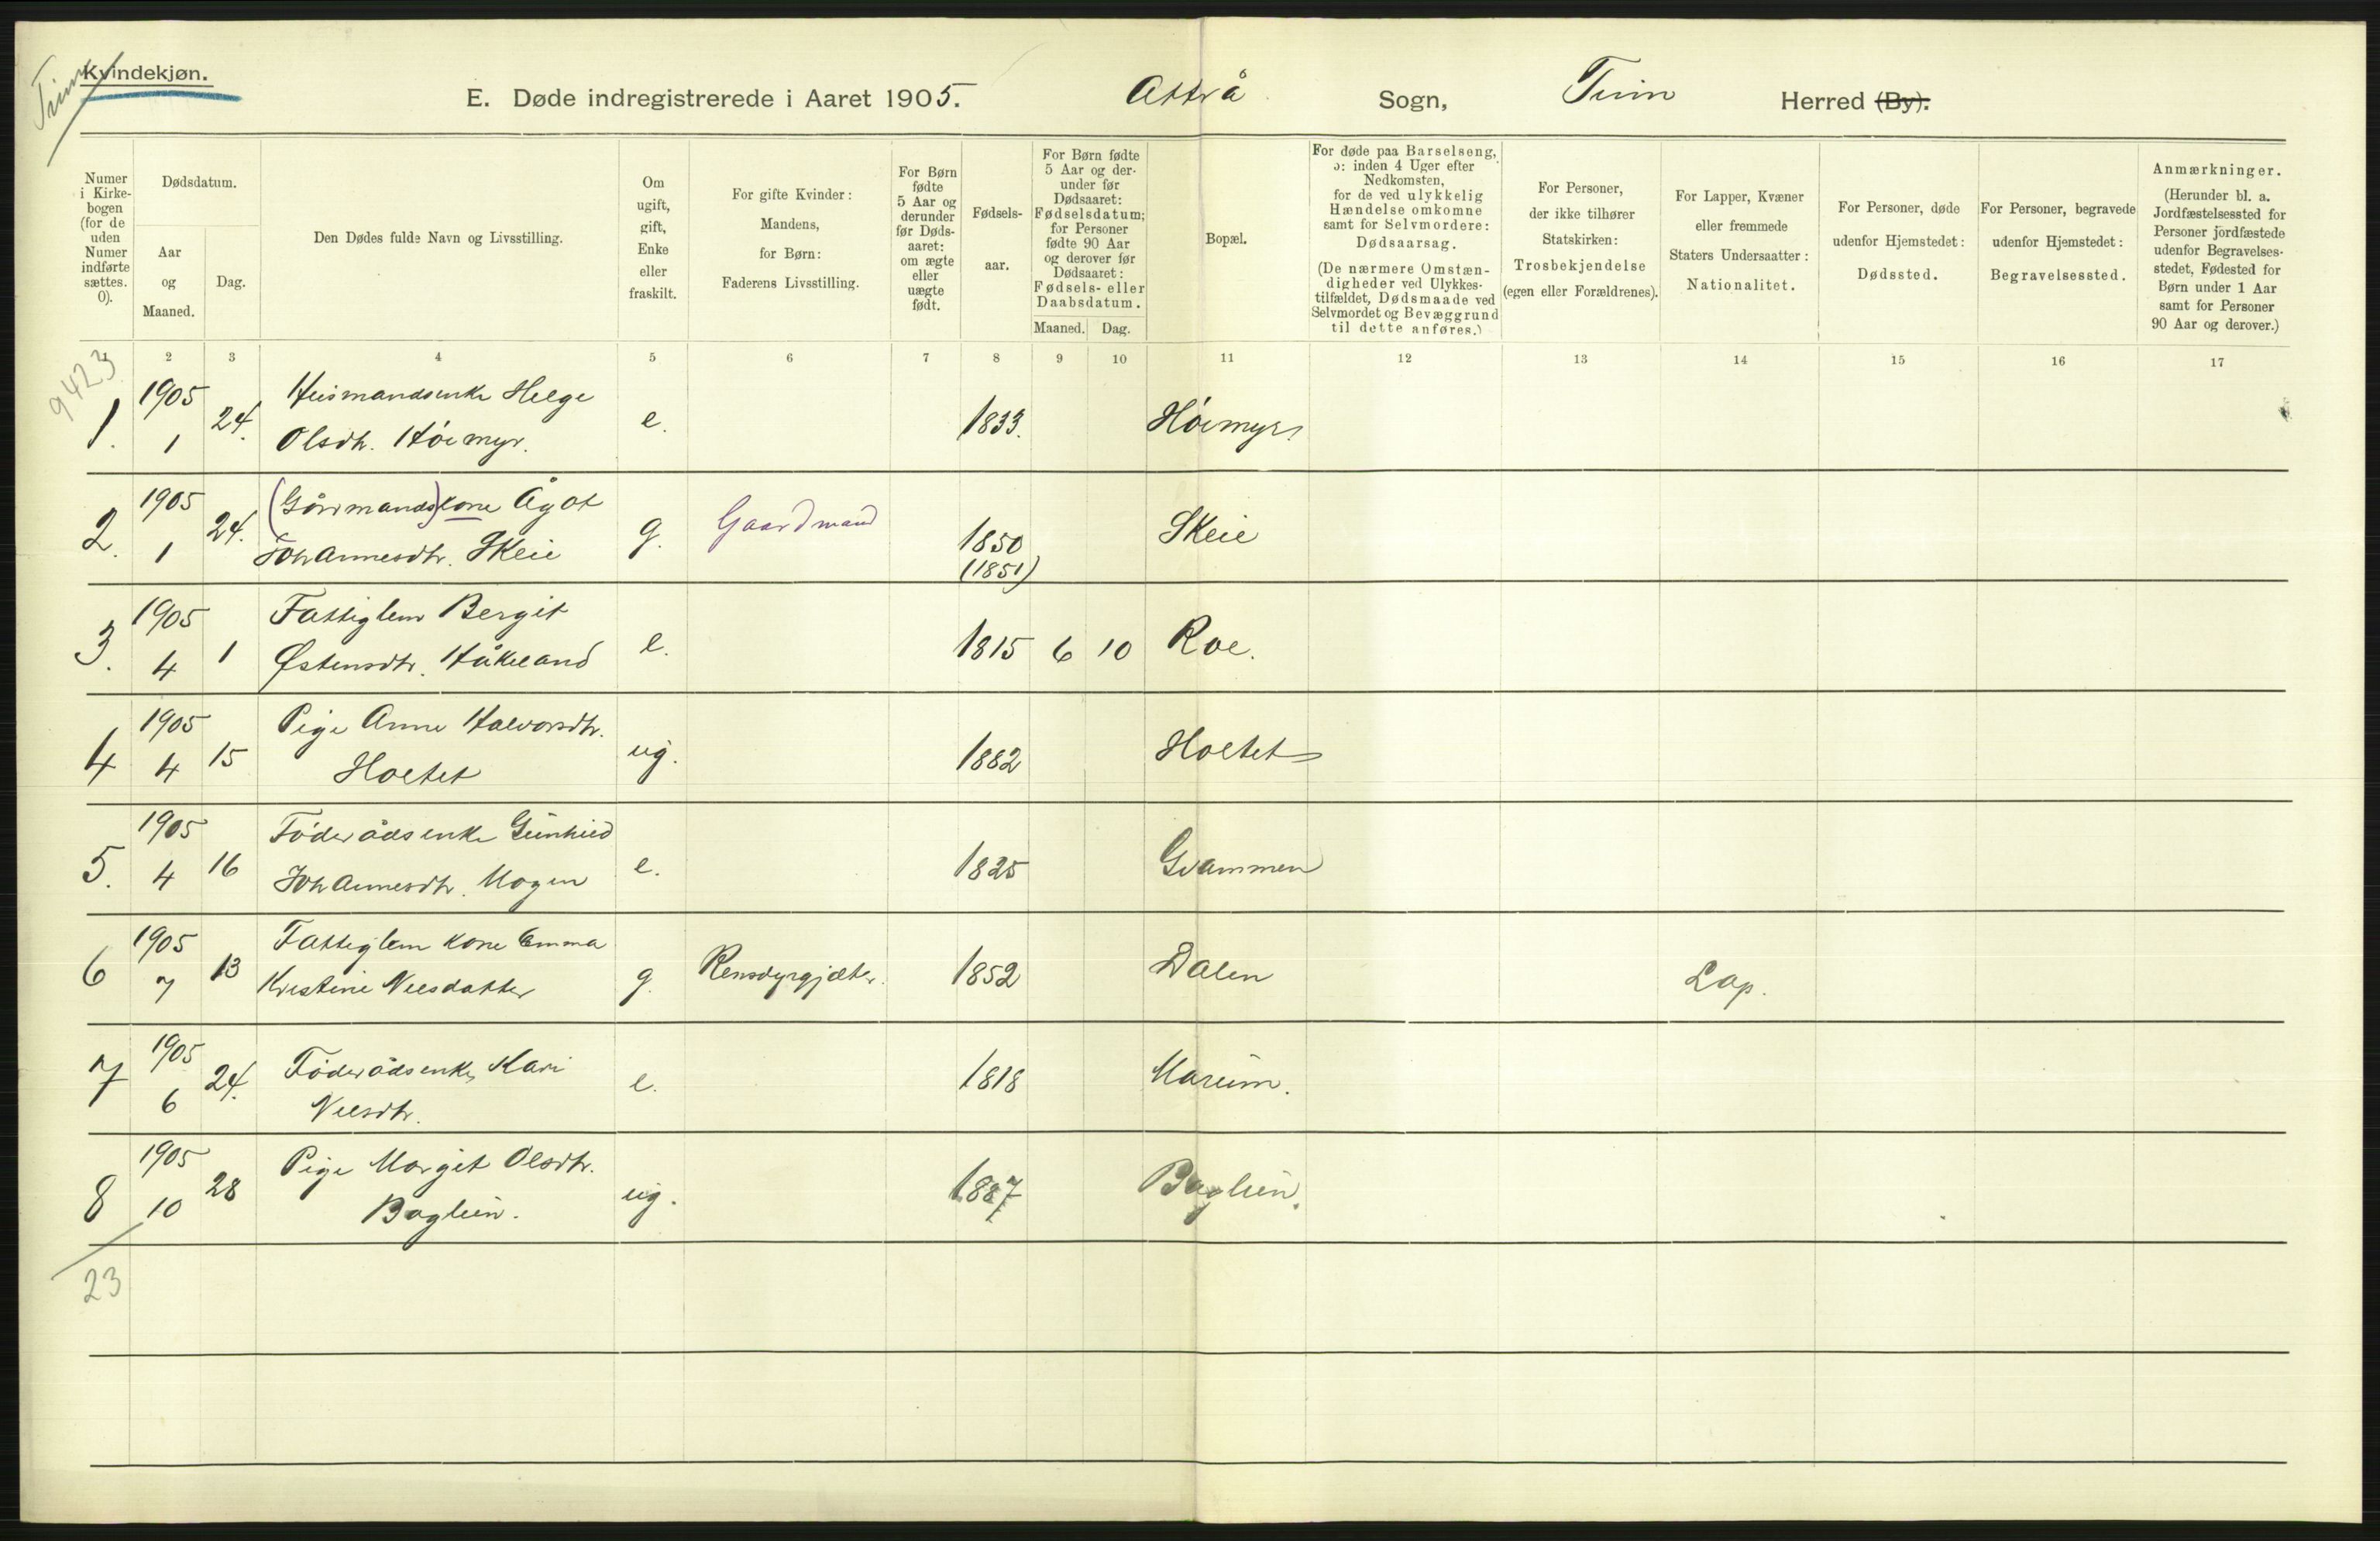 Tinn
Kvindekjøn.
E. Døde indregistrerede i Aaret 1905. Attrå Sogn, Tinn Herred (By).
Numer i Kirkebogen (for de uden Numer indførte sættes. 0).
Dødsdatum.
Aar og Maaned.
Dag.
Den Dødes fulde Navn og Livsstilling.
Om ugift, gift, Enke eller fraskilt.
For gifte Kvinder: Mandens, for Børn: Faderens Livsstilling.
For Børn fødte 5 Aar og derunder før Dødsaaret: om ægte eller uægte født.
Fødselsaar.
For Børn fødte 5 Aar og derunder før Dødsaaret: Fødselsdatum; for Personer fødte 90 Aar og derover før Dødsaaret: Fødsels- eller Daabsdatum.
Maaned. Dag.
Bopæl.
For døde paa Barselseng, ɔ: inden 4 Uger efter Nedkomsten, for de ved ulykkelig Hændelse omkomne samt for Selvmordere: Dødsaarsag.
(De nærmere Omstændigheder ved Ulykkestilfældet, Dødsmaade ved Selvmordet og Bevæggrund til dette anføres.)
For Personer, der ikke tilhører Statskirken: Trosbekjendelse (egen eller Forældrenes).
For Lapper, Kvæner eller fremmede Staters Undersaatter: Nationalitet.
For Personer, døde udenfor Hjemstedet: Dødssted.
For Personer, begravede udenfor Hjemstedet: Begravelsessted.
Anmærkninger.
(Herunder bl. a. Jordfæstelsessted for Personer jordfæstede udenfor Begravelsesstedet, Fødested for Børn under 1 Aar samt for Personer 90 Aar og derover.)
2 3 4 5 6 7 8 9 10 11 12 13 14 15 16 17
9423
1. 1905 1 24. Husmandsenke Helge
Olsdtr. Höimyr. e. 1833. Höimyr
2. 1905 1 24. (Gårdmands)kone Ågot
Johannesdtr. Skeie g. Gaardmand 1850 (1851) Skeie
3. 1905 4 1 Fattiglem Bergit
Østensdtr. Håkeland e. 1815 6 10 Roe.
4 1905 4 15 Pige Anne Halvorsdtr.
Holtet ug. 1882 Holtet
5. 1905 4 16 Föderådsenke Gunhild
Johannesdtr. Mogen e. 1825 Gvammen
6 1905 7 13 Fattiglem kone Emma
Kristine Nilsdatter g. Rensdyrgjæter. 1852 Dalen Lap.
7 1905 6 24. Föderådsenke Kari
Nilsdtr. e. 1818 Marum.
8 1905 10 28 Pige Margit Olsdtr.
Böglün. ug. 1887 Böglün.
23